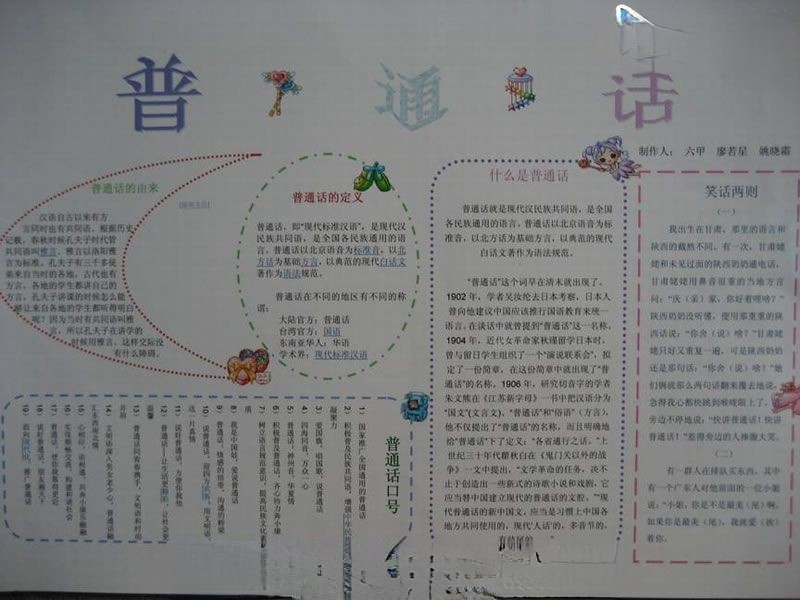 普通话
制作人： 六甲 廖若星 姚晓霜
普通话的由来
汉语自古以来有方
言同时也有共同语，根据历史
记载，春秋时候孔夫子时代管
共同语叫雅言，雅言以洛阳雅
言为标准。孔夫子有三千多徒
弟来自当时的各地，古代也有
方言，各地的学生都讲自己的
方言，孔夫子讲课的时候怎么能
够让来自各地的学生都听得明白
呢？因为当时有共同语叫雅
言，所以孔夫子在讲学的
时候用雅言，这样交际没
有什么障碍。
普通话的定义
普通话，即“现代标准汉语”，是现代汉
民族共同语，是全国各民族通用的语
言。普通话以北京语音为标准音，以北
方话为基础方言，以典范的现代白话文
著作为语法规范。
普通话在不同的地区有不同的称
谓：
大陆官方：普通话
台湾官方：国语
东南亚华人：华语
学术界：现代标准汉语
什么是普通话
普通话就是现代汉民族共同语，是全国
各民族通用的语言。普通话以北京语音为标
准音，以北方话为基础方言，以典范的现代
白话文著作为语法规范。
“普通话”这个词早在清末就出现了。
1902年，学者吴汝纶去日本考察，日本人
曾向他建议中国应该推行国语教育来统一
语言。在谈话中就曾提到“普通话”这一名称。
1904年，近代女革命家秋瑾留学日本时，
曾与留日学生组织了一个“演说联系会”，拟
定了一份简章，在这份简章中就出现了“普
通话”的名称。1906年，研究切音字的学者
朱文熊在《江苏新字母》一书中把汉语分为
“国文”(文言文)、“普通话”和“俗语”(方言)，
他不仅提出了“普通话”的名称，而且明确地
给“普通话”下了定义：“各省通行之话。”上
世纪三十年代瞿秋白在《鬼门关以外的战
争》一文中提出，“文学革命的任务，决不
止于创造出一些新式的诗歌小说和戏剧，它
应当替中国建立现代的普通话的文腔。”“现
代普通话的新中国文，应当是习惯上中国各
地方共同使用的，现代‘人话’的，多音节的，
有结尾的
笑话两则
（一）
我出生在甘肃，那里的语言和
陕西的截然不同。有一次，甘肃姥
姥和未见过面的陕西奶奶通电话，
甘肃姥姥用鼻音很重的当地方言
问：“庆（亲）家，你好着嘈啥？”
陕西奶奶没听懂，便用那重重的陕
西话说：“你舍（说）啥？”甘肃姥
姥只好又重复一遍，可是陕西奶奶
还是那句话：“你舍（说）啥？”她
们俩就那么两句话翻来覆去地说，
急得我心都快跳到喉咙眼上了。
旁边不停地说：“快讲普通话！快讲
普通话！”惹得旁边的人捧腹大笑。
（二）
有一群人在排队买东西，其中
有一个广东人对他前面的一位小姐
说：“小姐，你是不是最美（尾）啊，
如果你是最美（尾），我就爱（挨）
着你。
普通话口号
1）国家推广全国通用的普通话
2）积极普及民族共同语，增强中华民族
凝聚力
3）爱国旗，唱国歌，说普通话
4）四海同音，万众一心
5）普通话：神州音，华夏情
6）积极普及普通话，齐心协力奔小康
7）树立语言规范意识，提高民族文化素
质
8）我是中国娃，爱说普通话
9）普通话，情感的纽带，沟通的桥梁
10）说普通话，迎四方宾客，用文明语，
送一片真情
11）说好普通话，方便你我他
12）普通话——让生活更精彩，让社会更
温馨
13）普通话同青春携手，文明语和时尚
并肩
14）文明语深入男女老少心，普通话融
汇东西南北情
15）心相印，语相通，共奔小康乐融融
16）实现顺畅交流，构建和谐社会
17）普通话，使你我靠得更近
18）说好普通话，朋友遍天下
19）面向现代化，推广普通话